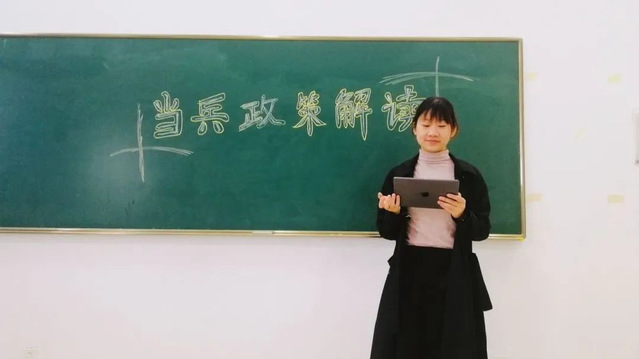 当兵政策解读